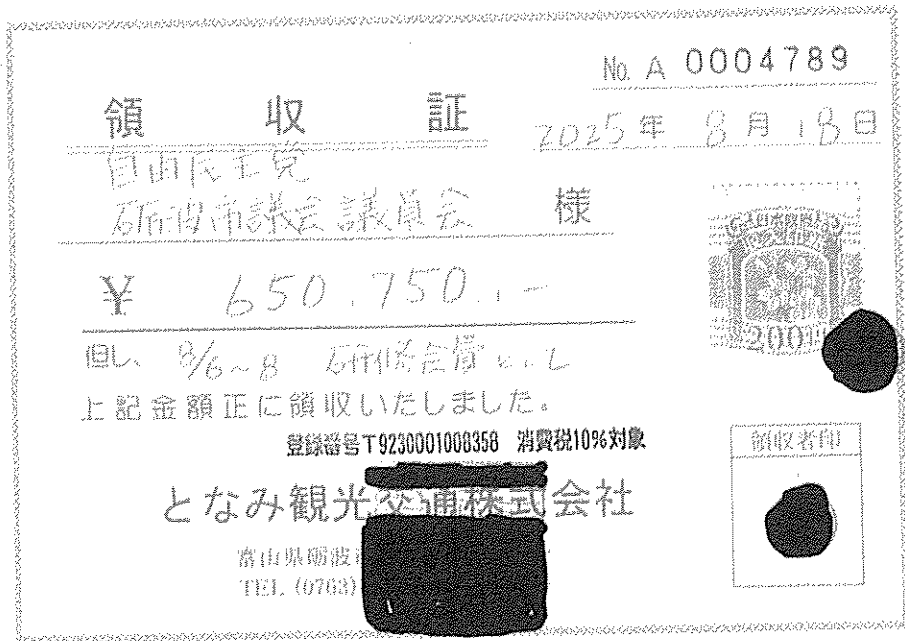 No. A 0004789
領収証
2025年 8月 18日
自由民主党
砺波市議会議員会 様
¥ 650.750.-
200円
但し、 8/6~8 研修会費として
上記金額正に領収いたしました。
登録番号T9230001008358 消費税10%対象
となみ観光交通株式会社
領収者印
富山県砺波
TEL (0763)